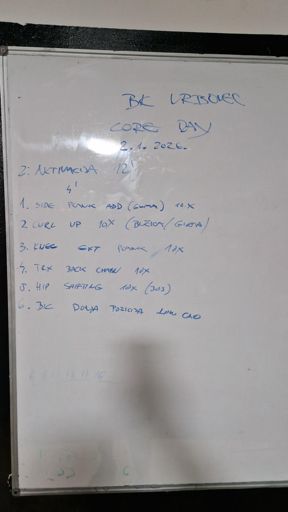 BK VRBOVEC
CORE DAY
2.1.2026.
2. AKTIVACIJA 12'
4'
1. SIDE PLANK ADD (GUMA) 10X
2. CURL UP 10X (/GIRJA)
3. KNEE EXT PLANK 10X
4. TRX BACK CHAIN 10X
5. HIP SHIFTING 10X (3x3)
6. BK DONJA POZICIJA